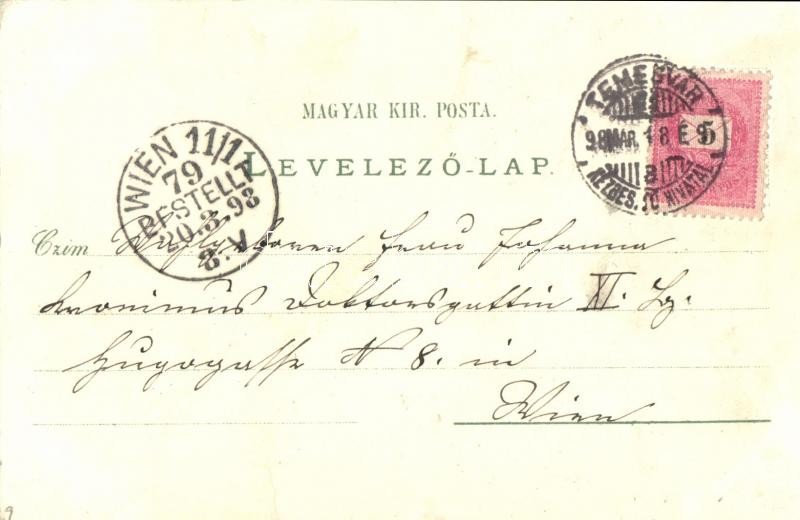 MAGYAR KIR. POSTA.
LEVELEZŐ-LAP.
WIEN 11/1
79
BESTELLT
20.3.98
8.V
TEMESVÁR
98 MÁR. 18 E 9
5
Czim Wohlgeboren Frau Johanna
Kronimus Doktorsgattin XI. Bz.
Hugogasse N 8. in
Wien
9